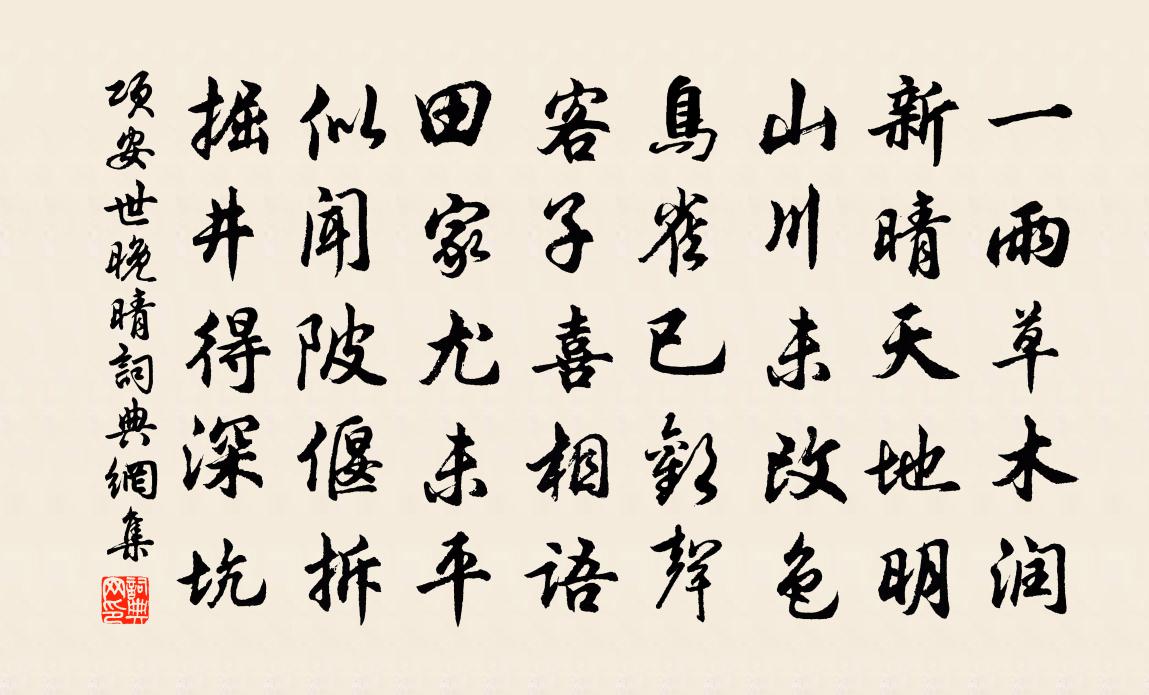 一雨草木润
新晴天地明
山川未改色
鳥雀已歡聲
客子喜相語
田家尤未平
似闻陂偃拆
掘井得深坑
项安世晚晴詞典網集
詞典网印